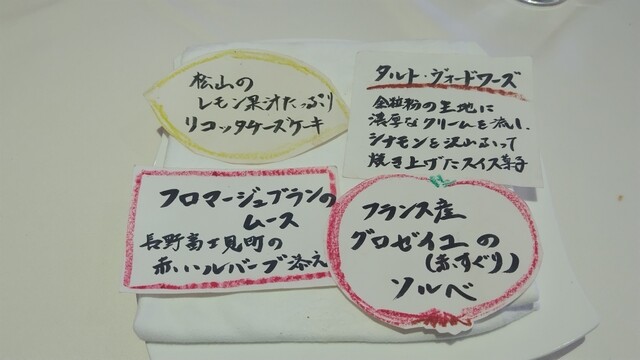 松山の
レモン果汁たっぷり
リコッタケーズケーキ
タルト・ヴォードワーズ
全粒粉の生地に
濃厚なクリームを流し、
シナモンを沢山ふって
焼き上げたスイス菓子
フロマージュブランの
ムース
長野富士見町の
赤いルバーブ添え
フランス産
グロゼイユの
(赤すぐり)
ソルベ